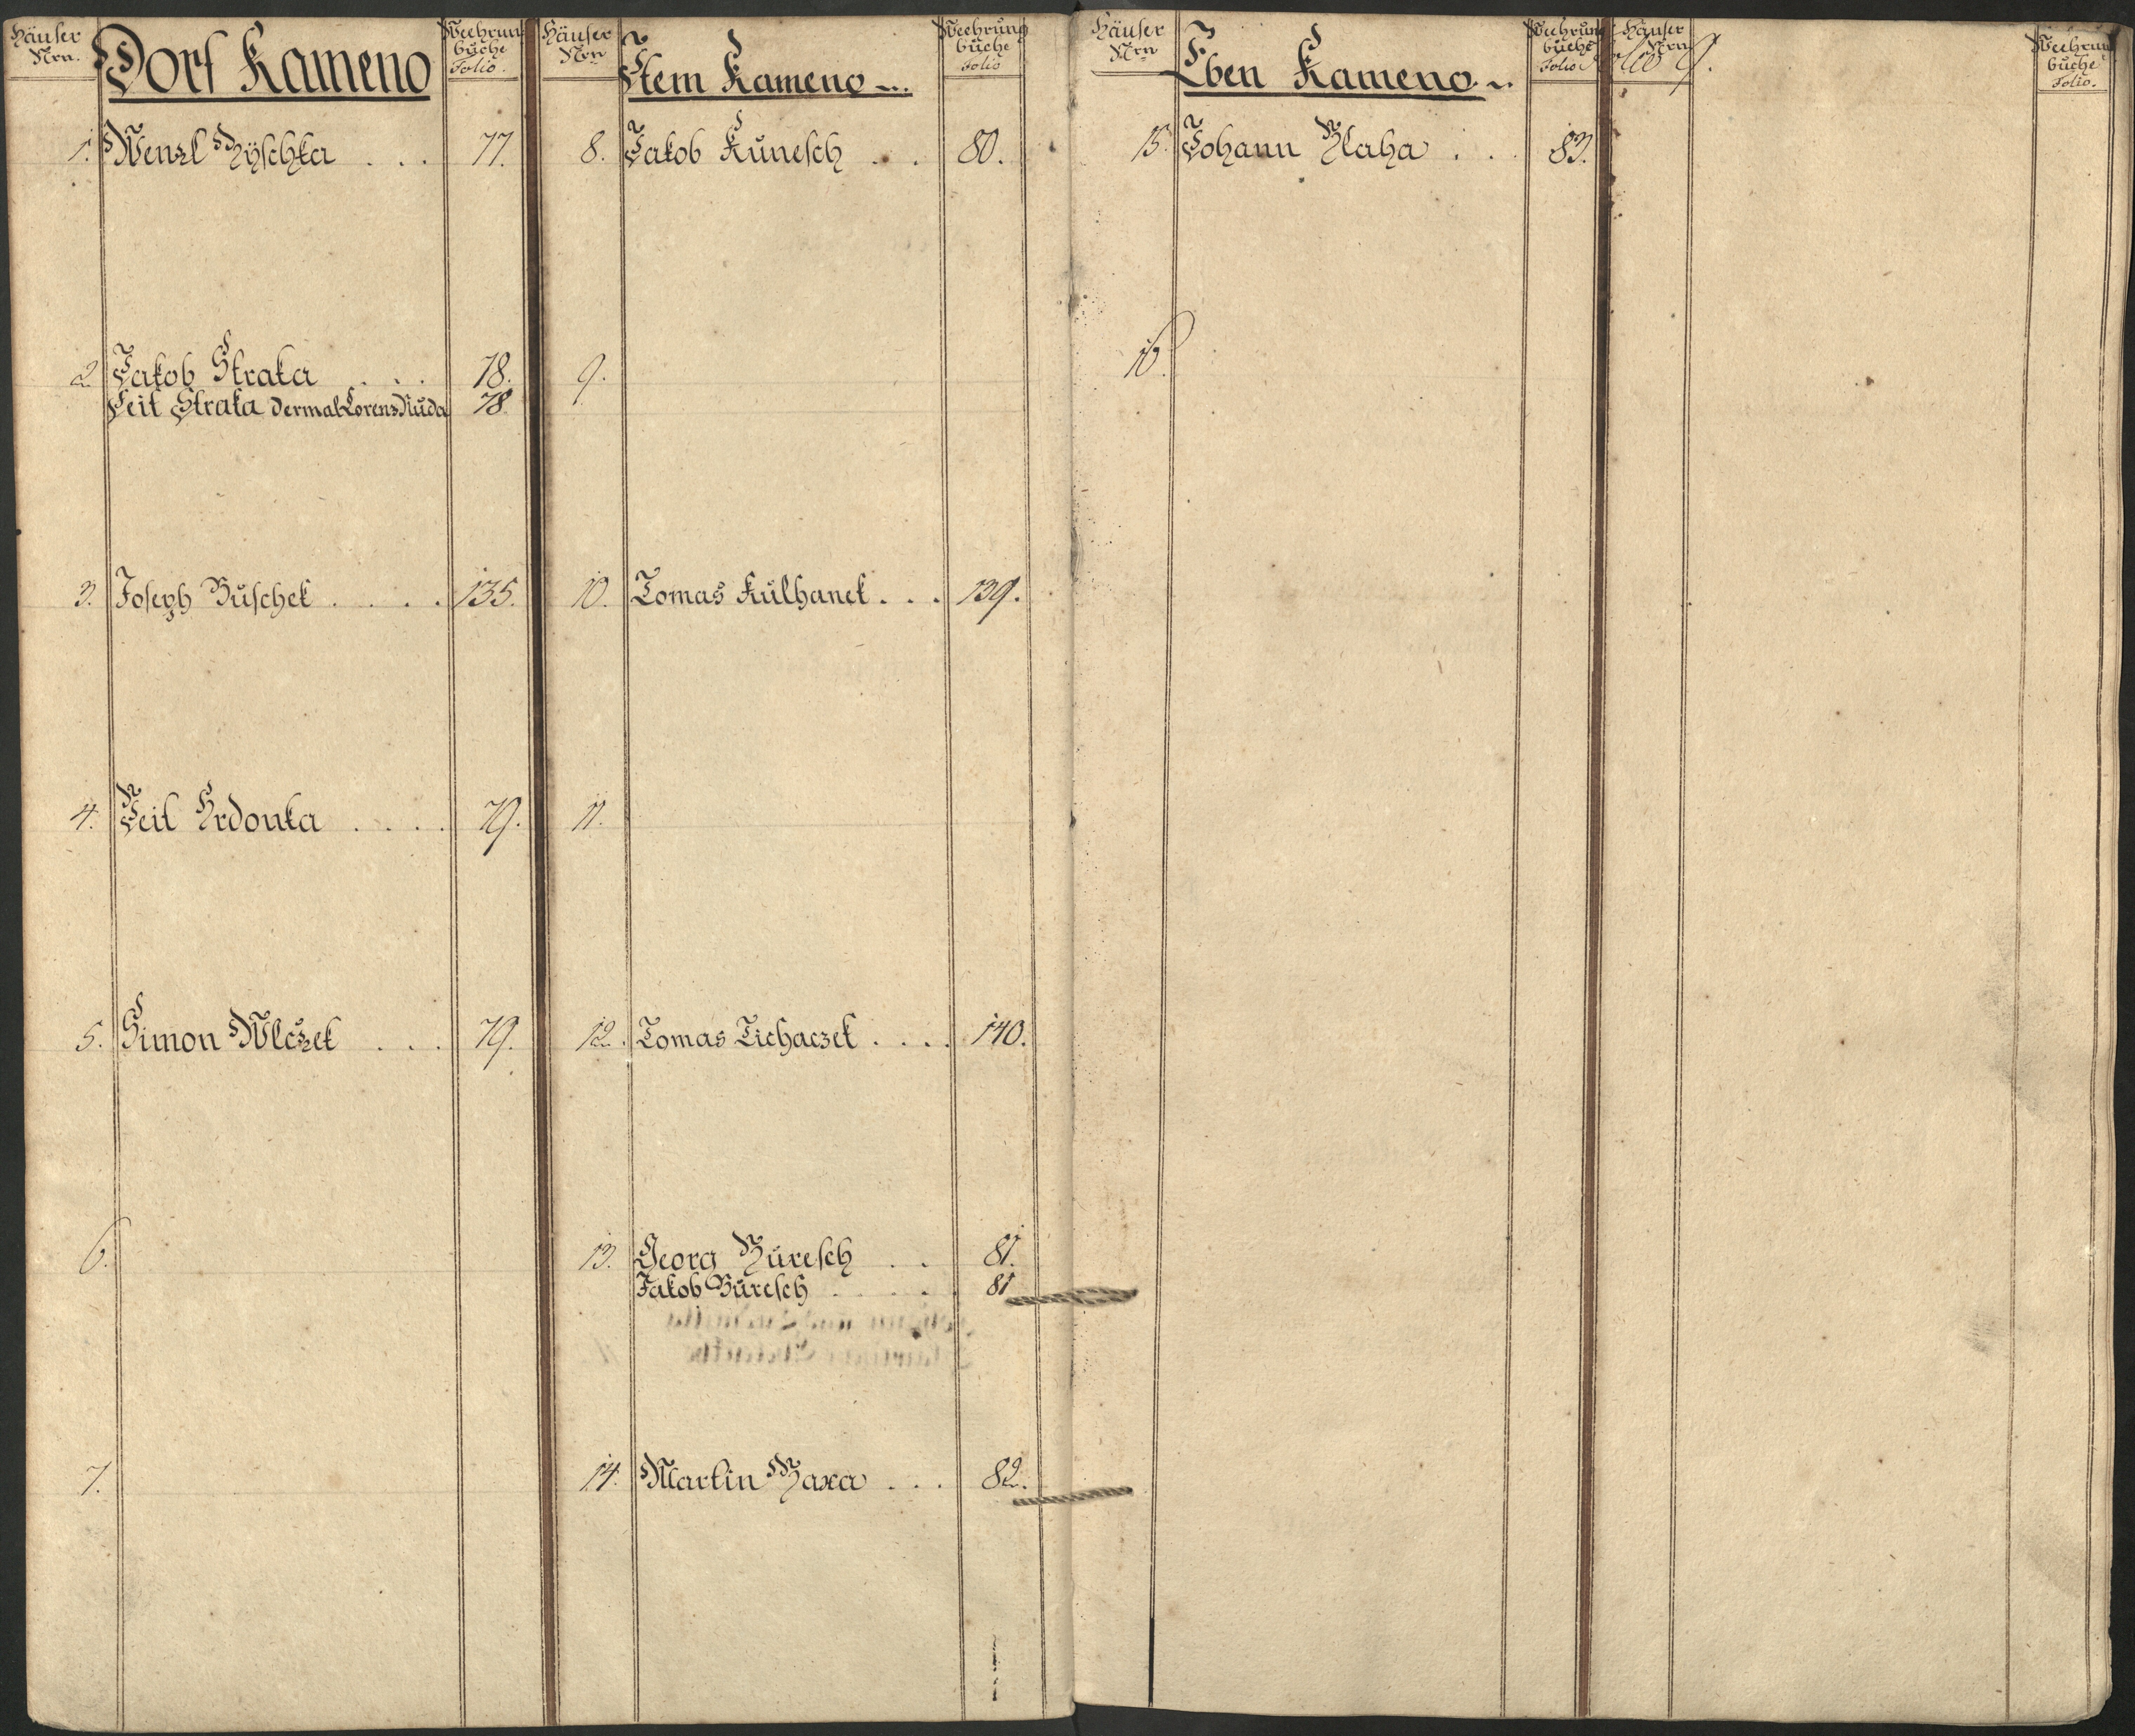 Häuser Nrn.
Dorf Kameno
Veehrung
buche
Folio.
1. Wenzl Ryschka . . . 77.
2. Jakob Straka . . . 78.
Veit Straka dermal Lorenz Ruda 78
3. Joseph Buschek . . . . 135.
4. Veit Hrdonka . . . . 79.
5. Simon Wlczek . . . 79.
6.
7.
Häuser Nrn
Item Kameno
Veehrung
buche
Folio
8. Jakob Kunesch . . . 80.
9.
10. Tomas Kulhanek . . . 139.
11.
12. Tomas Tichaczek . . . . 140.
13. Georg Buresch . . 81.
Jakob Buresch . . . . . 81
14. Martin Maxa . . . 82.
Häuser Nrn
Eben Kameno
Veehrung
buche
Folio
15. Johann Blaha . . . 83.
16.
Häuser
Nrn
Veehrung
buche
Folio.